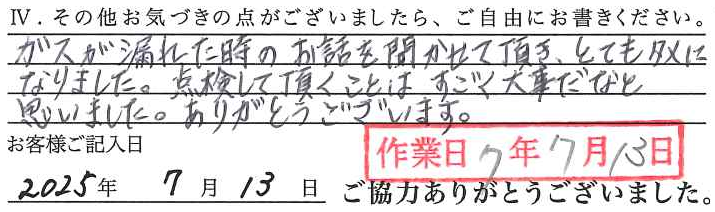 Ⅳ.その他お気づきの点がございましたら、ご自由にお書きください。
ガスが漏れた時のお話を聞かせて頂き、とてもタメに
なりました。点検して頂くことはすごく大事だなと
思いました。ありがとうございます。
お客様ご記入日
作業日 7年7月13日
2025年 7月13日 ご協力ありがとうございました。